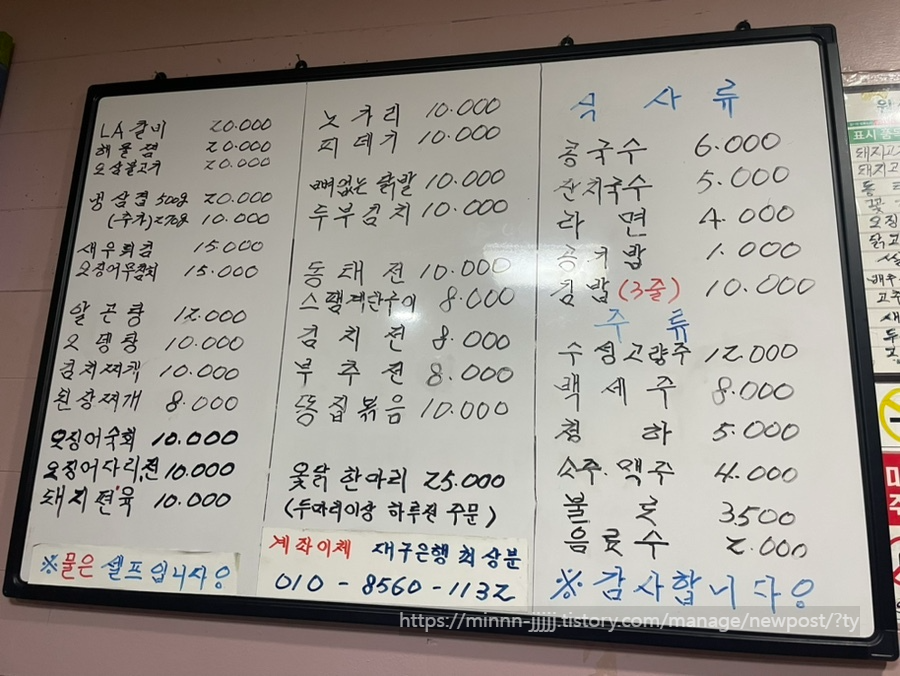 LA갈비 20.000
해물찜 20.000
오삼불고기 20.000
냉삼겹 500g 20.000
(추가)270g 10.000
새우튀김 15.000
오징어무침회 15.000
알곤탕 12.000
오뎅탕 10.000
김치찌개 10.000
된장찌개 8.000
오징어숙회 10.000
오징어다리전 10.000
돼지편육 10.000
※물은 셀프입니다용
노가리 10.000
피데기 10.000
뼈없는 닭발 10.000
두부김치 10.000
동태전 10.000
스팸계란구이 8.000
김치전 8.000
부추전 8.000
똥집볶음 10.000
옻닭 한마리 25.000
(두마리이상 하루전 주문)
계좌이체 대구은행 최상분
010-8560-1132
식사류
콩국수 6.000
잔치국수 5.000
라면 4.000
공기밥 1.000
김밥(3줄) 10.000
주류
수성고량주 12.000
백세주 8.000
청하 5.000
소주.맥주 4.000
불로 3500
음료수 2.000
※감사합니다용
표시 품목
돼지고
돼지고
오징
닭고
배추
고추
https://minnn-jjjjj.tistory.com/manage/newpost/?ty